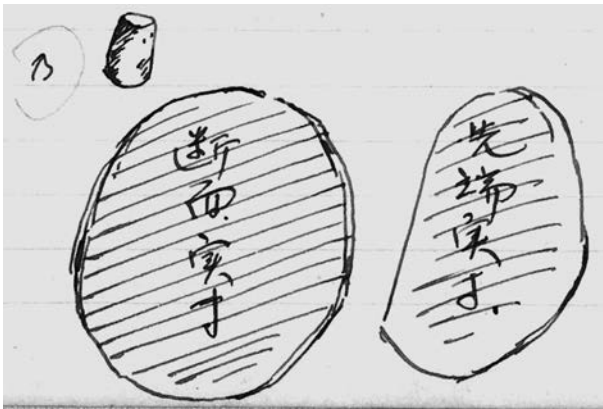 断面実寸
先端実寸